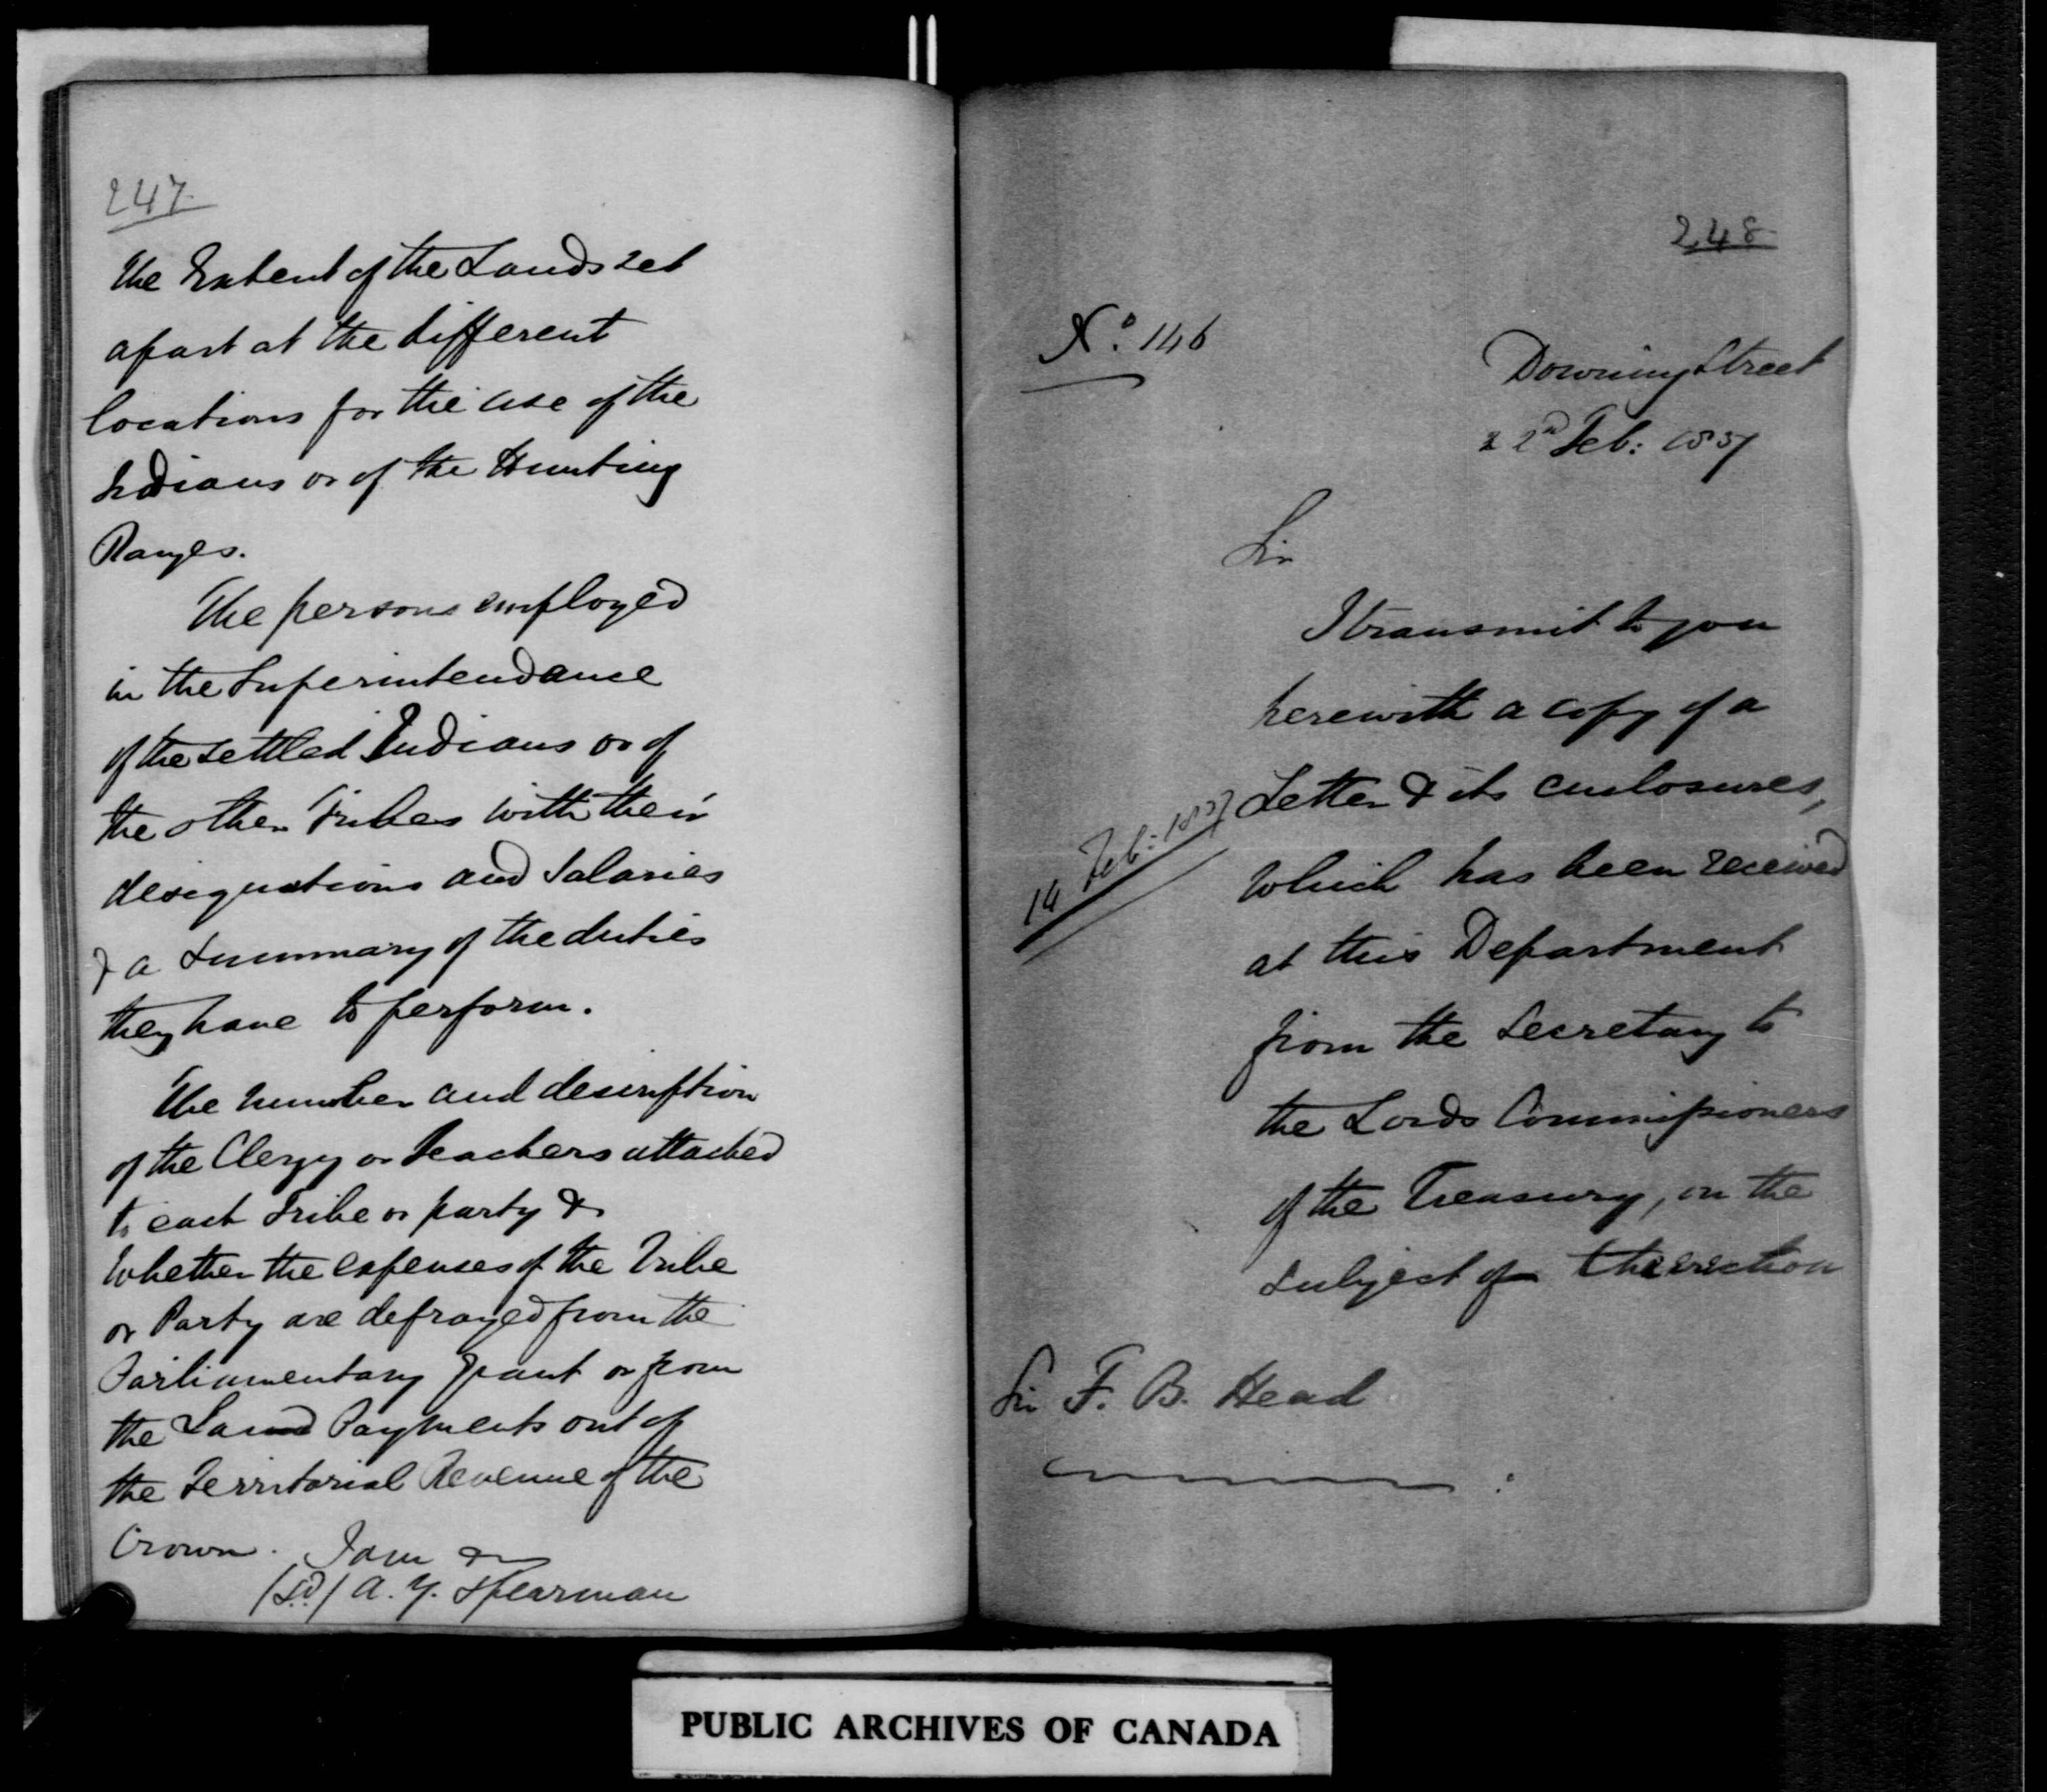 247.
the Extent of the Lands set
apart at the different
locations for the use of the
Indians or of the Hunting
Ranges.
The persons employed
in the Superintendance
of the settled Indians or of
the other Tribes with their
designations and Salaries
& a summary of the duties
they have to perform.
The number and description
of the Clergy or Teachers attached
to each Tribe or party &
Whether the expenses of the Tribe
or Party are defrayed from the
Parliamentary grant or from
the Land Payments out of
the Territorial Revenue of the
Crown. I am &
(Sd) A. Y. Spearman
248
No. 146
Downing Street
22d Feb: 1837
Sir
I transmit to you
herewith a copy of a
14 Feb: 1837
Letter & its enclosures,
which has been received
at this Department
from the Secretary to
the Lords Commissioners
of the Treasury, on the
subject of the erection
Sir F. B. Head
PUBLIC ARCHIVES OF CANADA